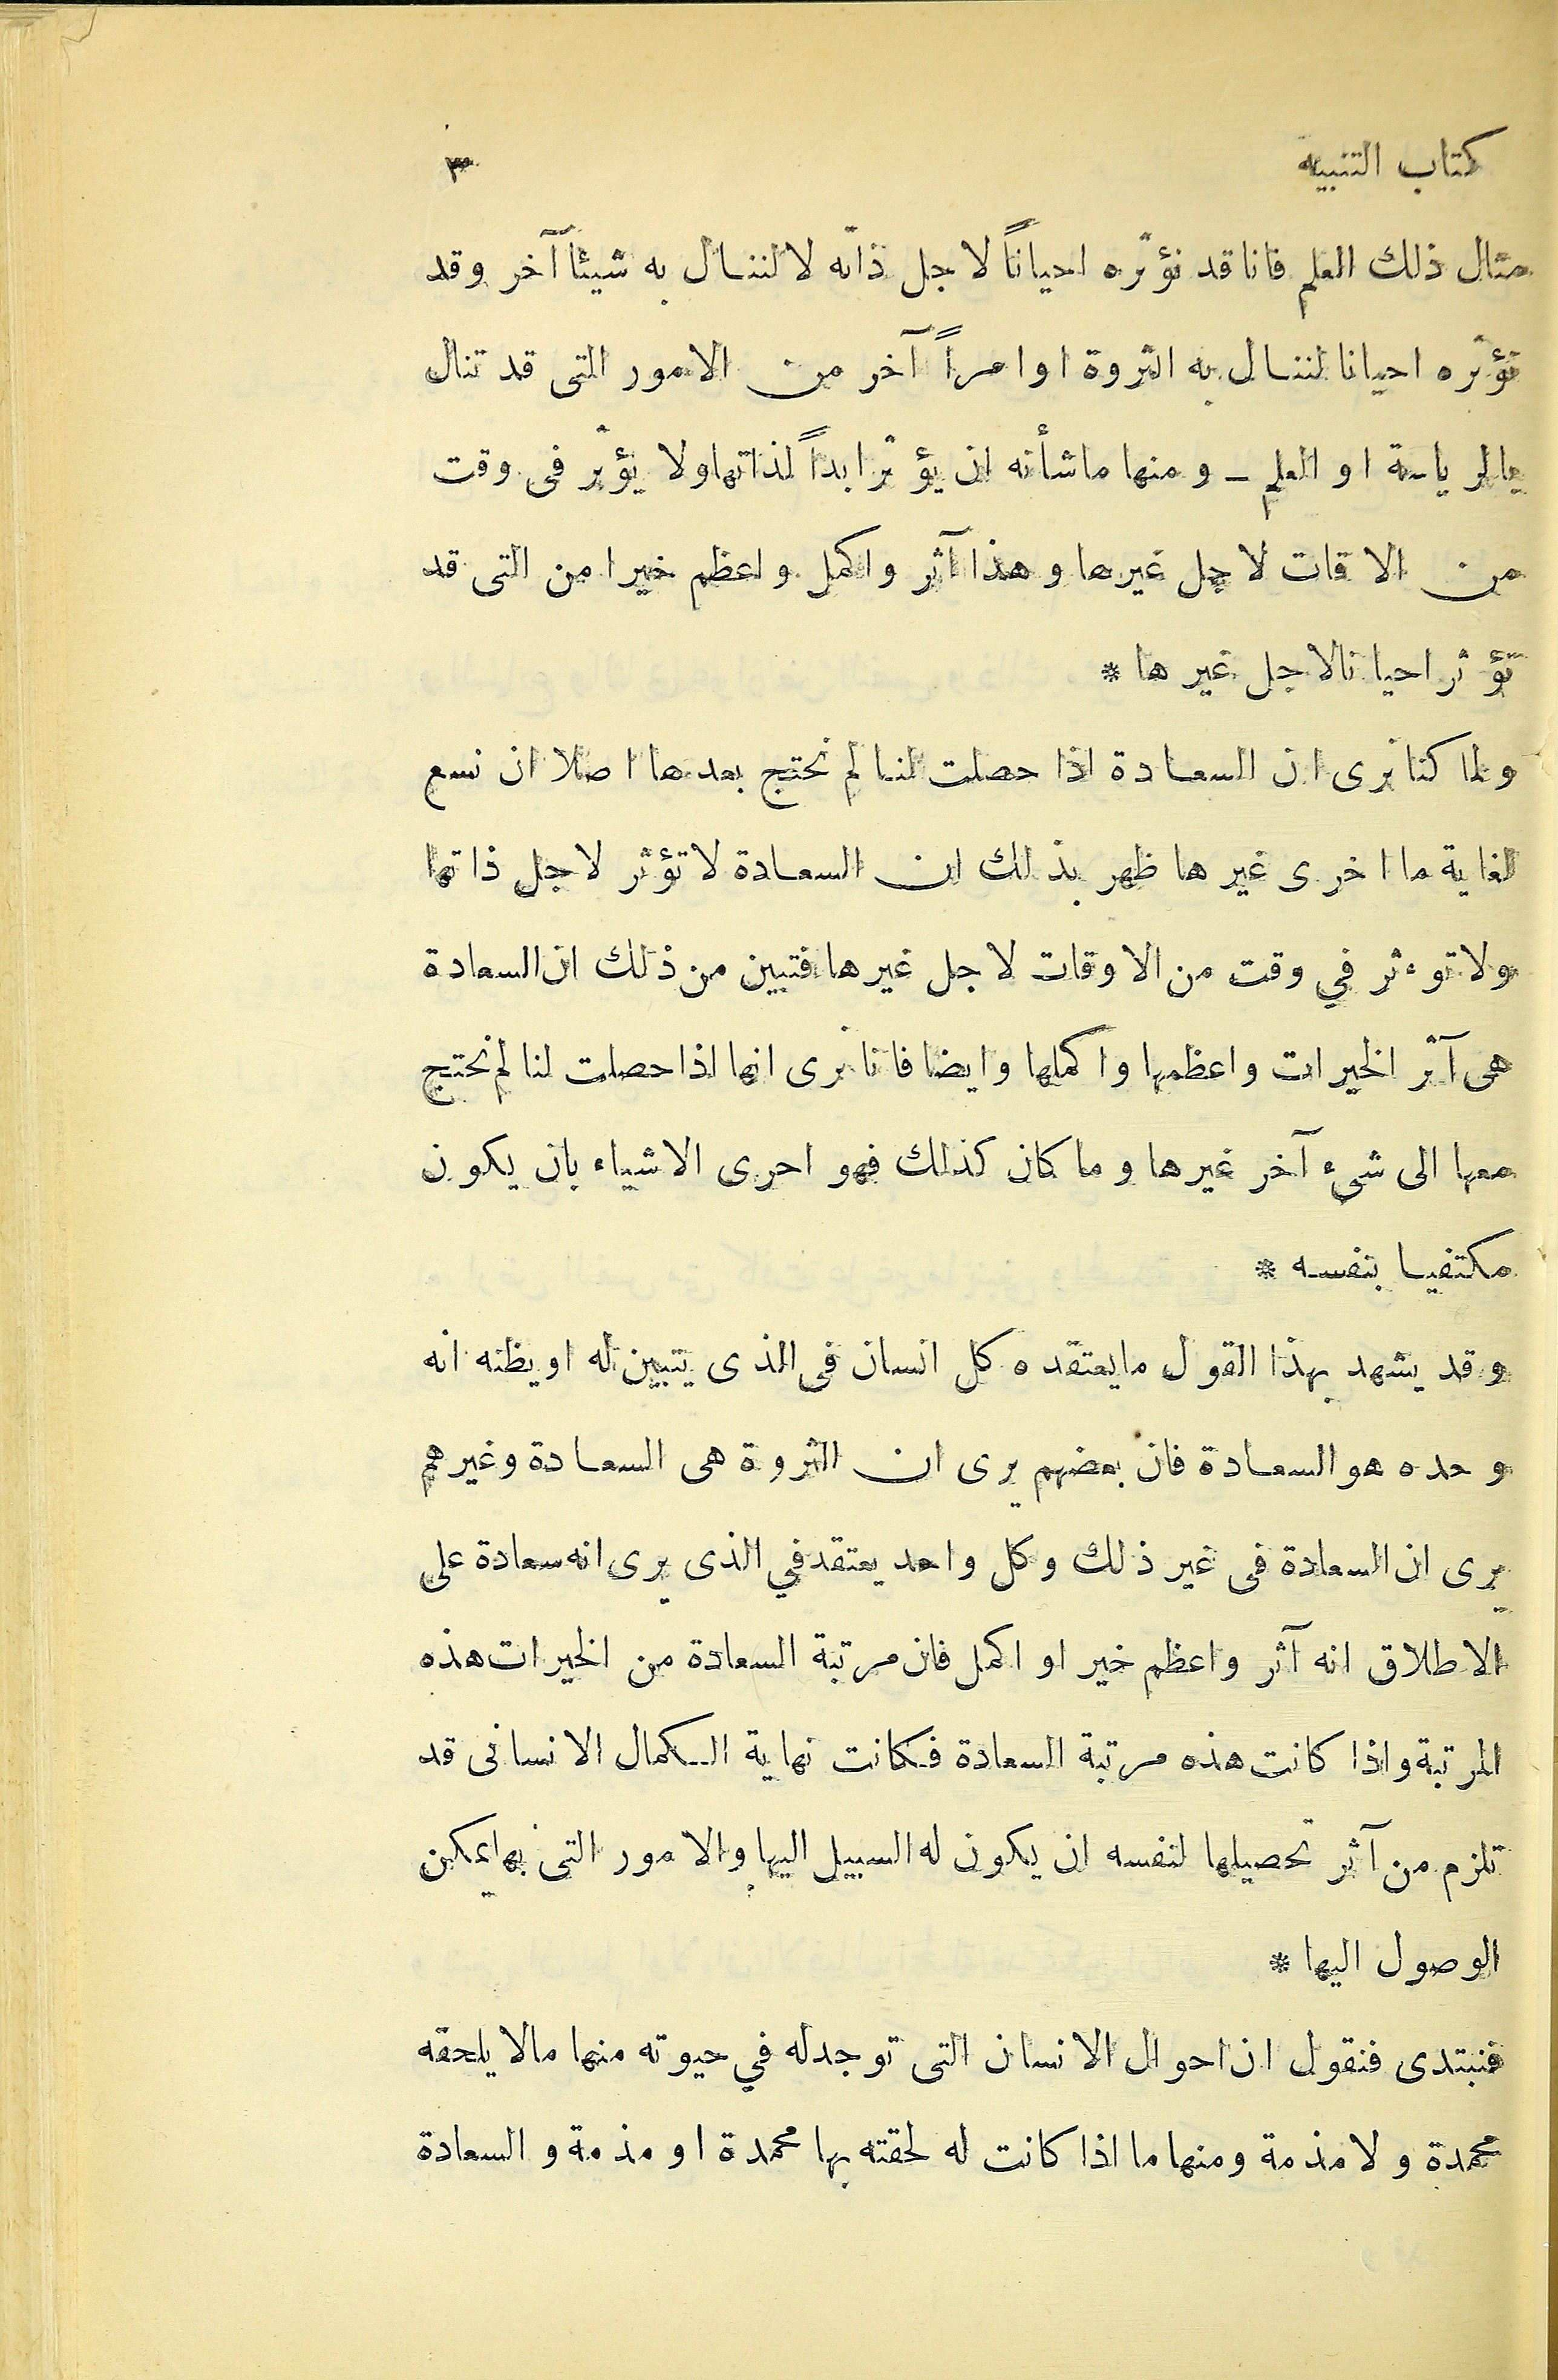 كتاب التنبيه ٣
مثال ذلك العلم فانا قد نؤثره احياناً لاجل ذاته لا لننال به شيئا آخر وقد
نؤثره احيانا لننال به الثروة او امراً آخر من الامور التى قد تنال
بالرياسة او العلم ــ ومنها ما شأنه ان يؤثر ابداً لذاتها ولا يؤثر فى وقت
من الاقات لاجل غيرها وهذا آثر واكمل واعظم خيرا من التى قد
تؤثر احيانا لاجل غيرها *
ولما كنا نرى ان السعادة اذا حصلت لنا لم نحتج بعدها اصلا ان نسع
لغاية ما اخرى غيرها ظهر بذلك ان السعادة لا تؤثر لاجل ذاتها
ولا توءثر في وقت من الاوقات لاجل غيرها فتبين من ذلك ان السعادة
هى آثر الخيرات واعظمها واكملها وايضا فانا نرى انها اذا حصلت لنا لم نحتج
معها الى شىء آخر غيرها وما كان كذلك فهو احرى الاشياء بان يكون
مكتفيا بنفسه *
وقد يشهد بهذا القول ما يعتقده كل انسان فى الذى يتبين له او يظنه انه
وحده هو السعادة فان بعضهم يرى ان الثروة هى السعادة وغيرهم
يرى ان السعادة فى غير ذلك وكل واحد يعتقد في الذى يرى انه سعادة على
الاطلاق انه آثر واعظم خير او اكمل فان مرتبة السعادة من الخيرات هذه
المرتبة واذا كانت هذه مرتبة السعادة فكانت نهاية الكمال الانسانى قد
تلزم من آثر تحصيلها لنفسه ان يكون له السبيل اليها والامور التى بها يمكن
الوصول اليها *
فنبتدى فنقول ان احوال الانسان التى توجد له في حيوته منها ما لا يلحقه
محمدة ولا مذمة ومنها ما اذا كانت له لحقته بها محمدة او مذمة والسعادة